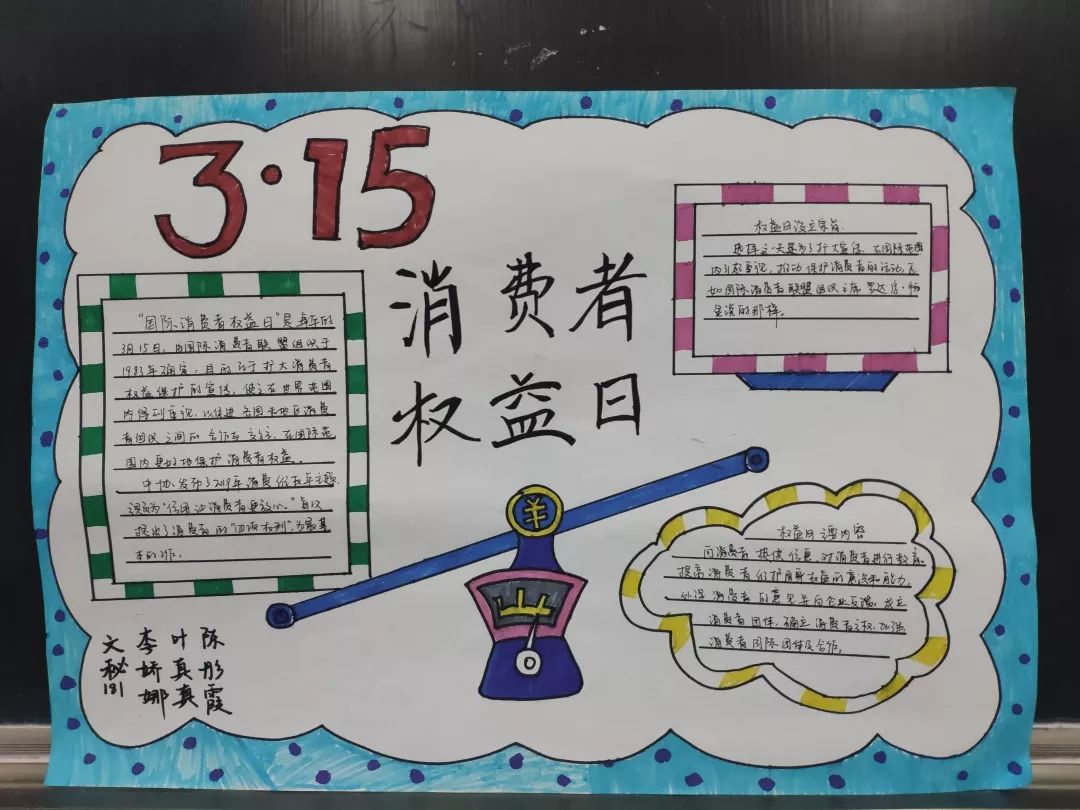 3·15
消费者
权益日
"国际消费者权益日"是每年的
3月15日，由国际消费者联盟组织于
1983年确定，目的在于扩大消费者
权益保护的宣传，使之在世界范围
内得到重视，以促进各国和地区消费
者组织之间的合作与交往，在国际范
围内更好地保护消费者权益。
中消协发布了2019年消费维权年主题
"信用让消费者更放心。"
消费者的
权益日设立宗旨
选择这一天是为了扩大宣传，在国际范围
内引起重视，推动保护消费者的活动，正
如国际消费者联盟组织主席
金说的那样。
权益日 内容
向消费者提供信息，对消费者进行教育，
提高消费者维护自身权益的意识和能力，
处理消费者的意见并向企业反馈，成立
消费者团体，确立消费者主权，加强
消费者国际团体及合作。
¥
陈彤霞
叶真真
李娇娜
文秘181